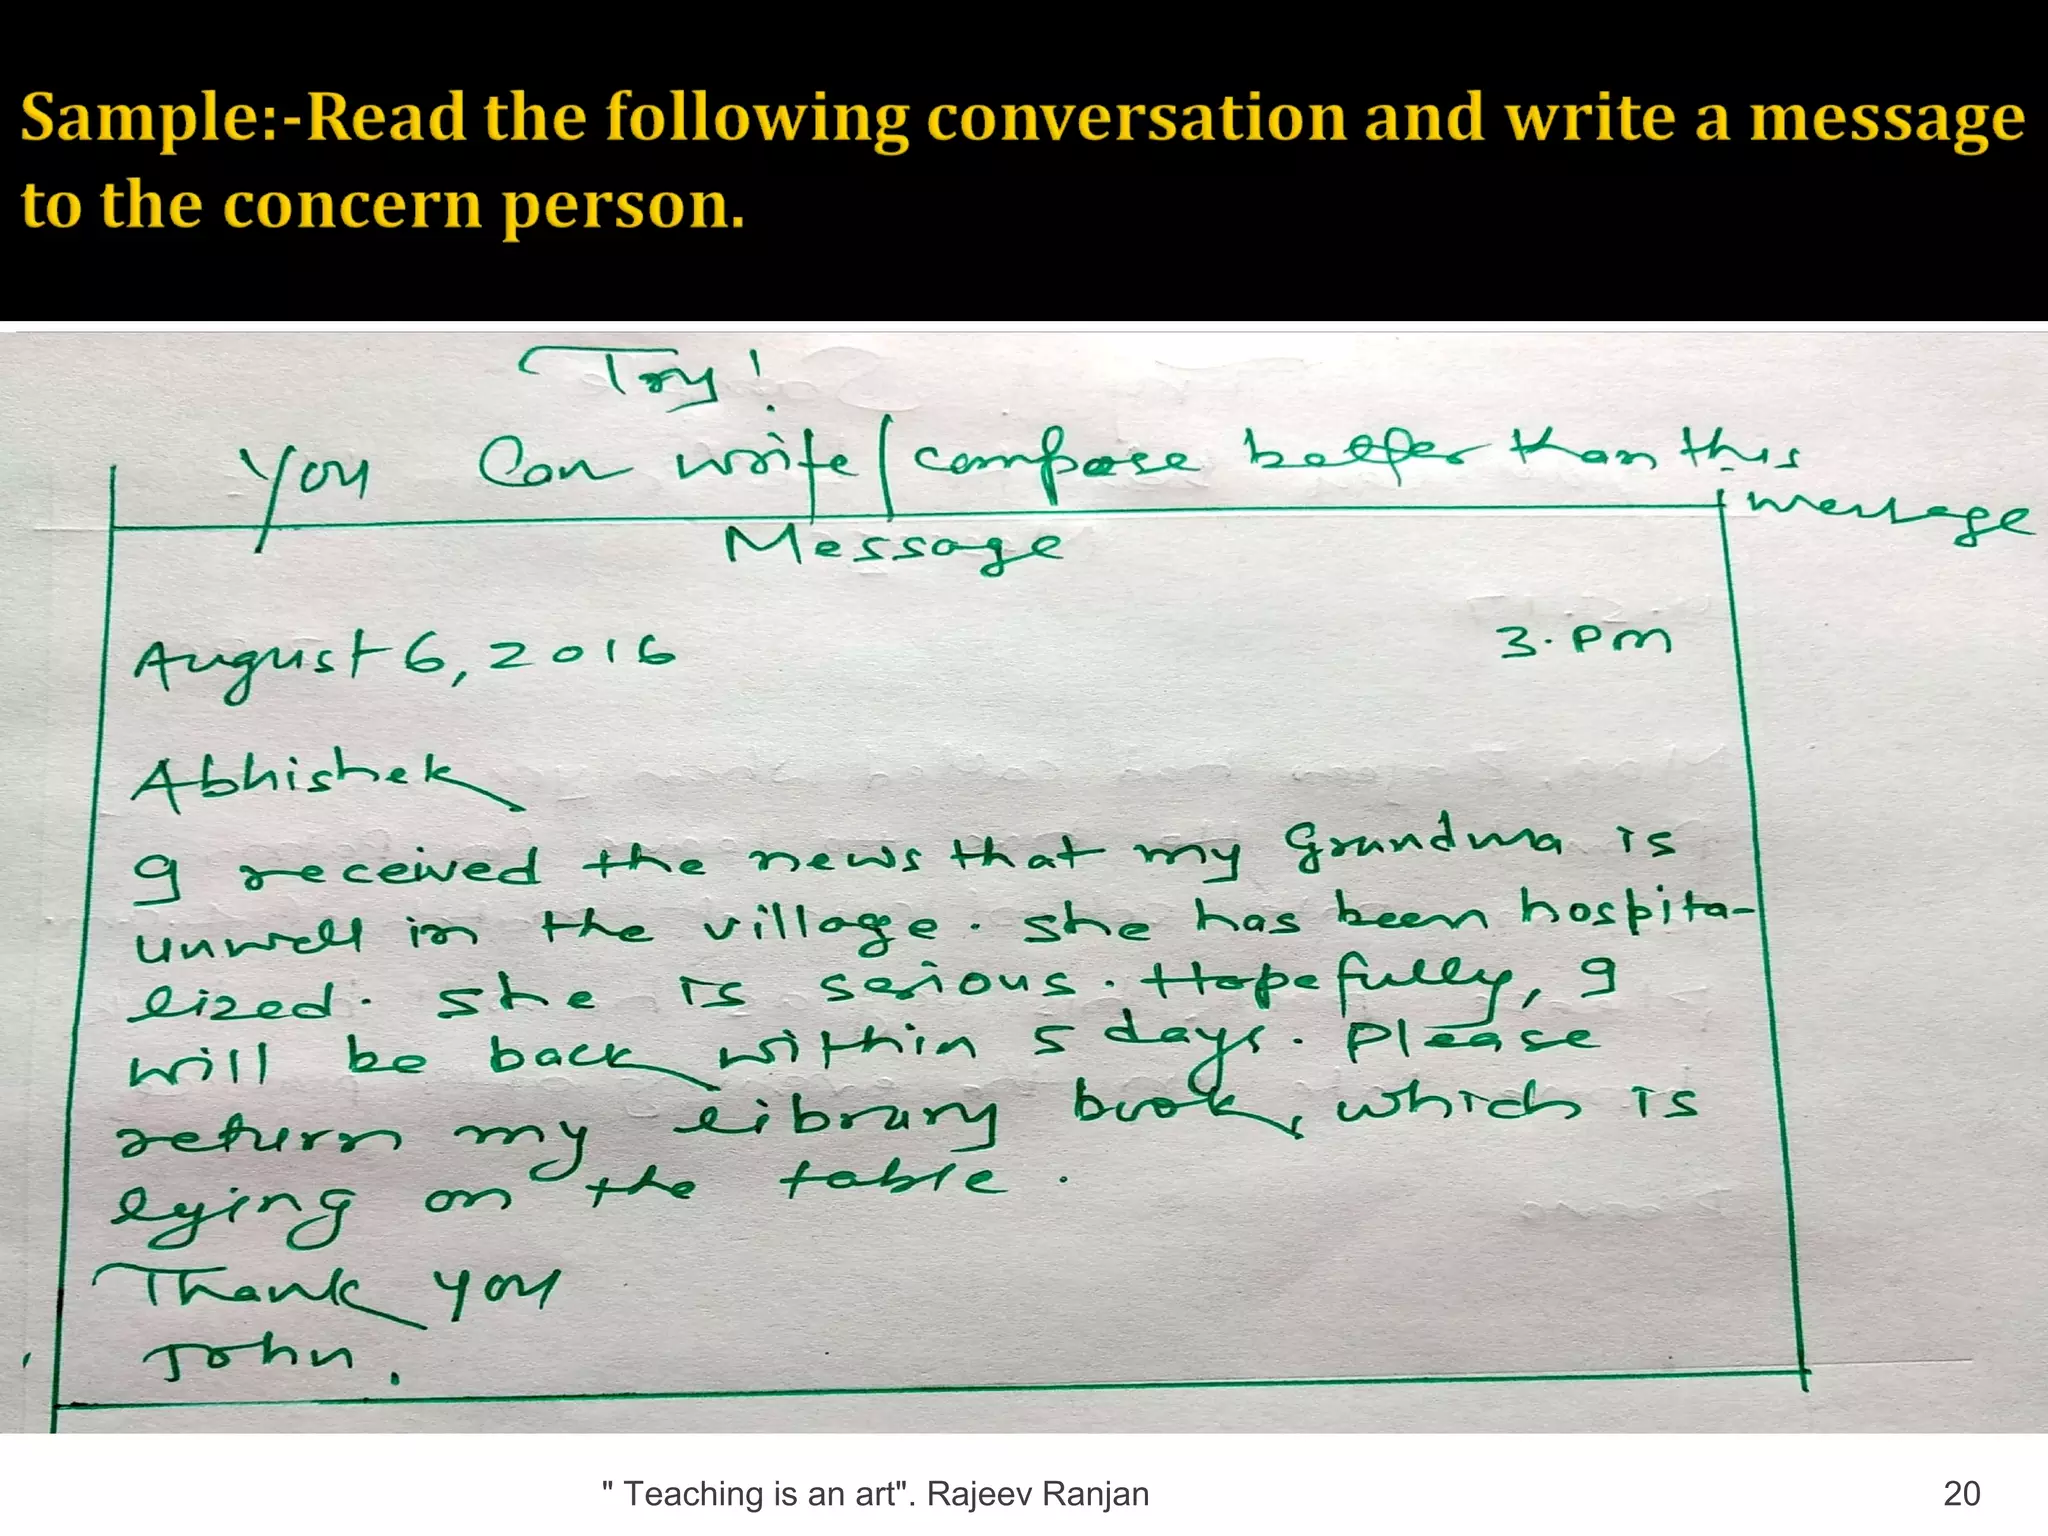 Sample:-Read the following conversation and write a message
to the concern person.
Try!
You Can write/compose better than this
message
Message
August 6, 2016 3. Pm
Abhishek
I received the news that my Grandma is
unwell in the village. She has been hospita-
lized. She is serious. Hopefully, I
will be back within 5 days. Please
return my library book, which is
lying on the table.
Thank you
John.
" Teaching is an art". Rajeev Ranjan 20